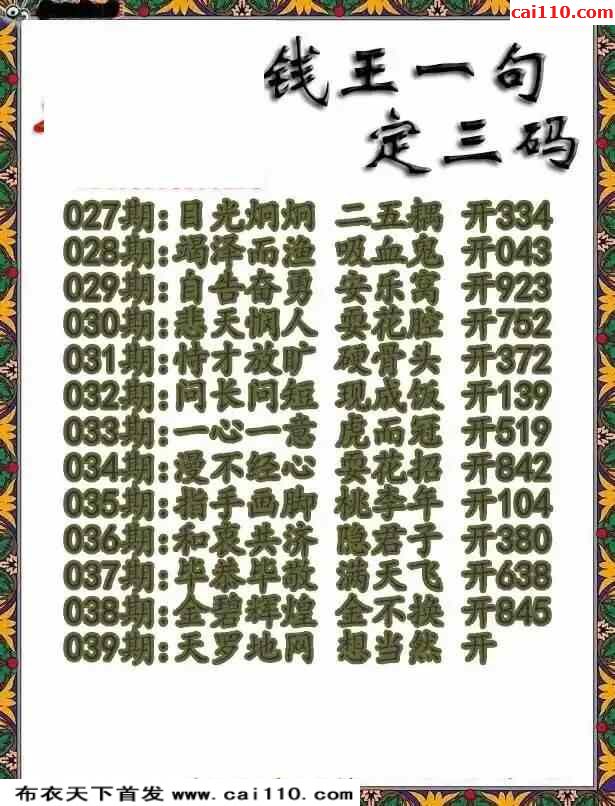 cai110.com
钱王一句
定三码
027期:目光炯炯 二五耦 开334
028期:竭泽而渔 吸血鬼 开043
029期:自告奋勇 安乐窝 开923
030期:悲天悯人 耍花腔 开752
031期:恃才放旷 硬骨头 开372
032期:问长问短 现成饭 开139
033期:一心一意 虎而冠 开519
034期:漫不经心 耍花招 开842
035期:指手画脚 桃李年 开104
036期:和衷共济 隐君子 开380
037期:毕恭毕敬 满天飞 开638
038期:金碧辉煌 金不换 开845
039期:天罗地网 想当然 开
布衣天下首发 www.cai110.com